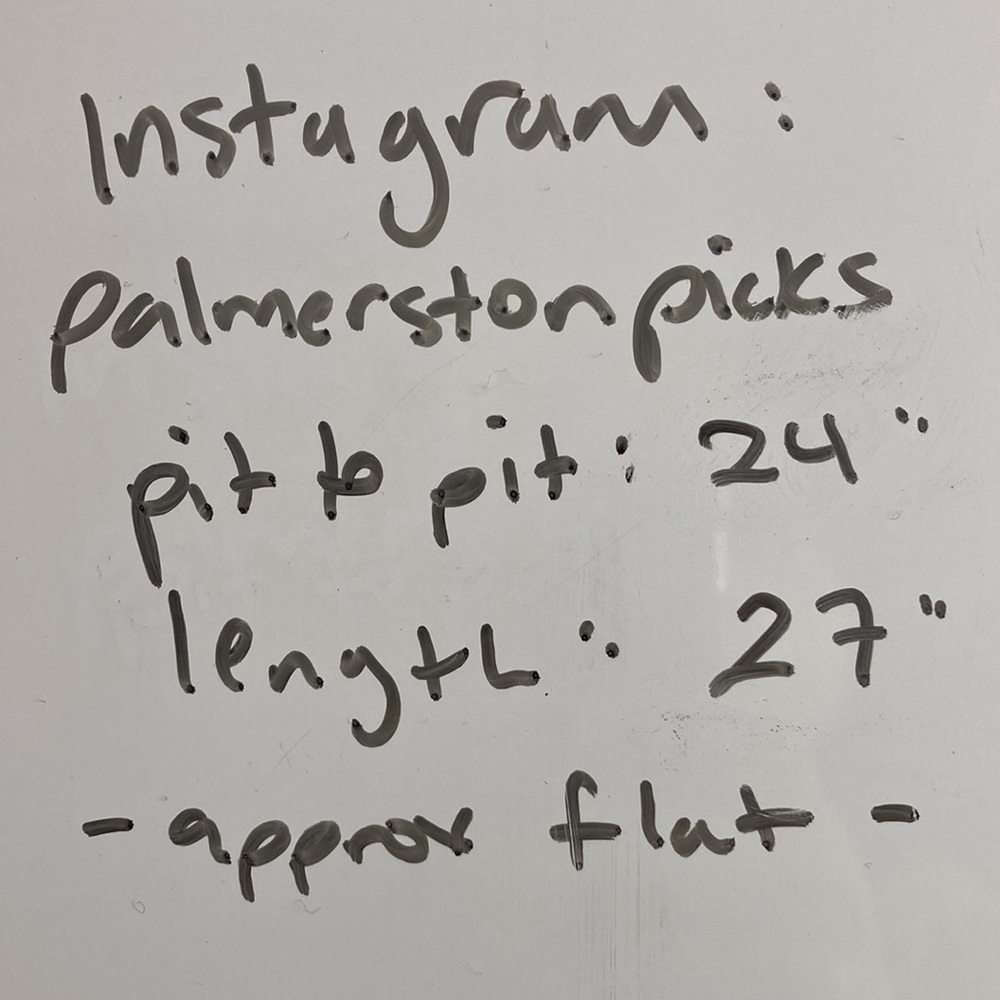 Instagram:
palmerstonpicks
pit to pit: 24"
length: 27"
- approx flat -